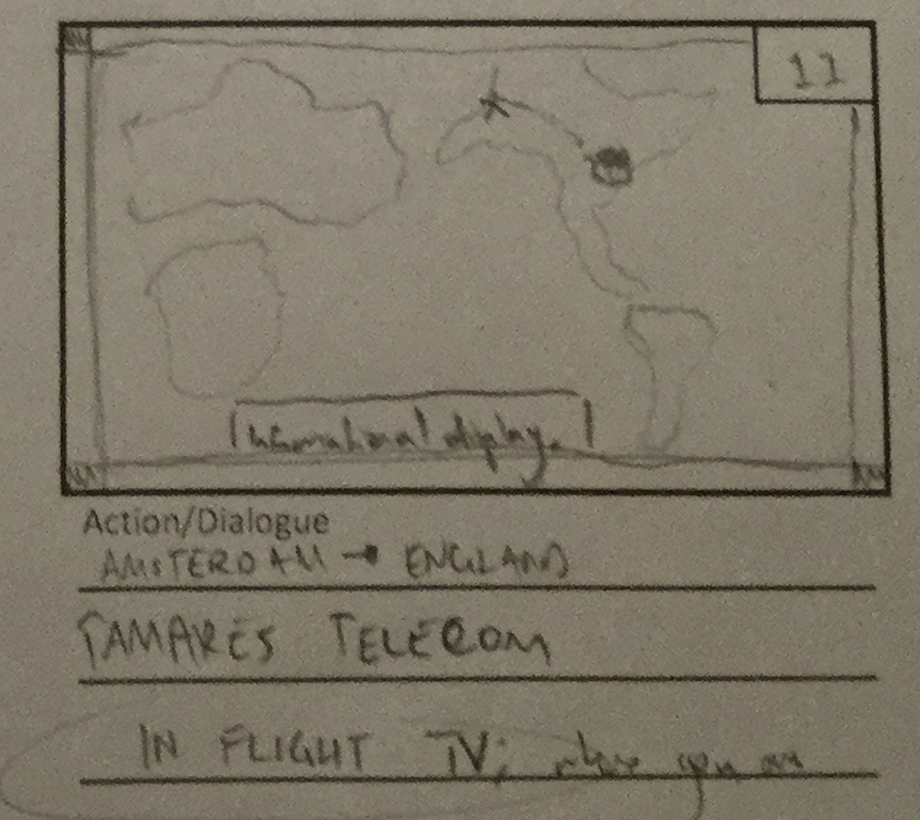 11
International display.
Action/Dialogue
AMSTERDAM → ENGLAND
TAMARES TELECOM
IN FLIGHT TV; where you are